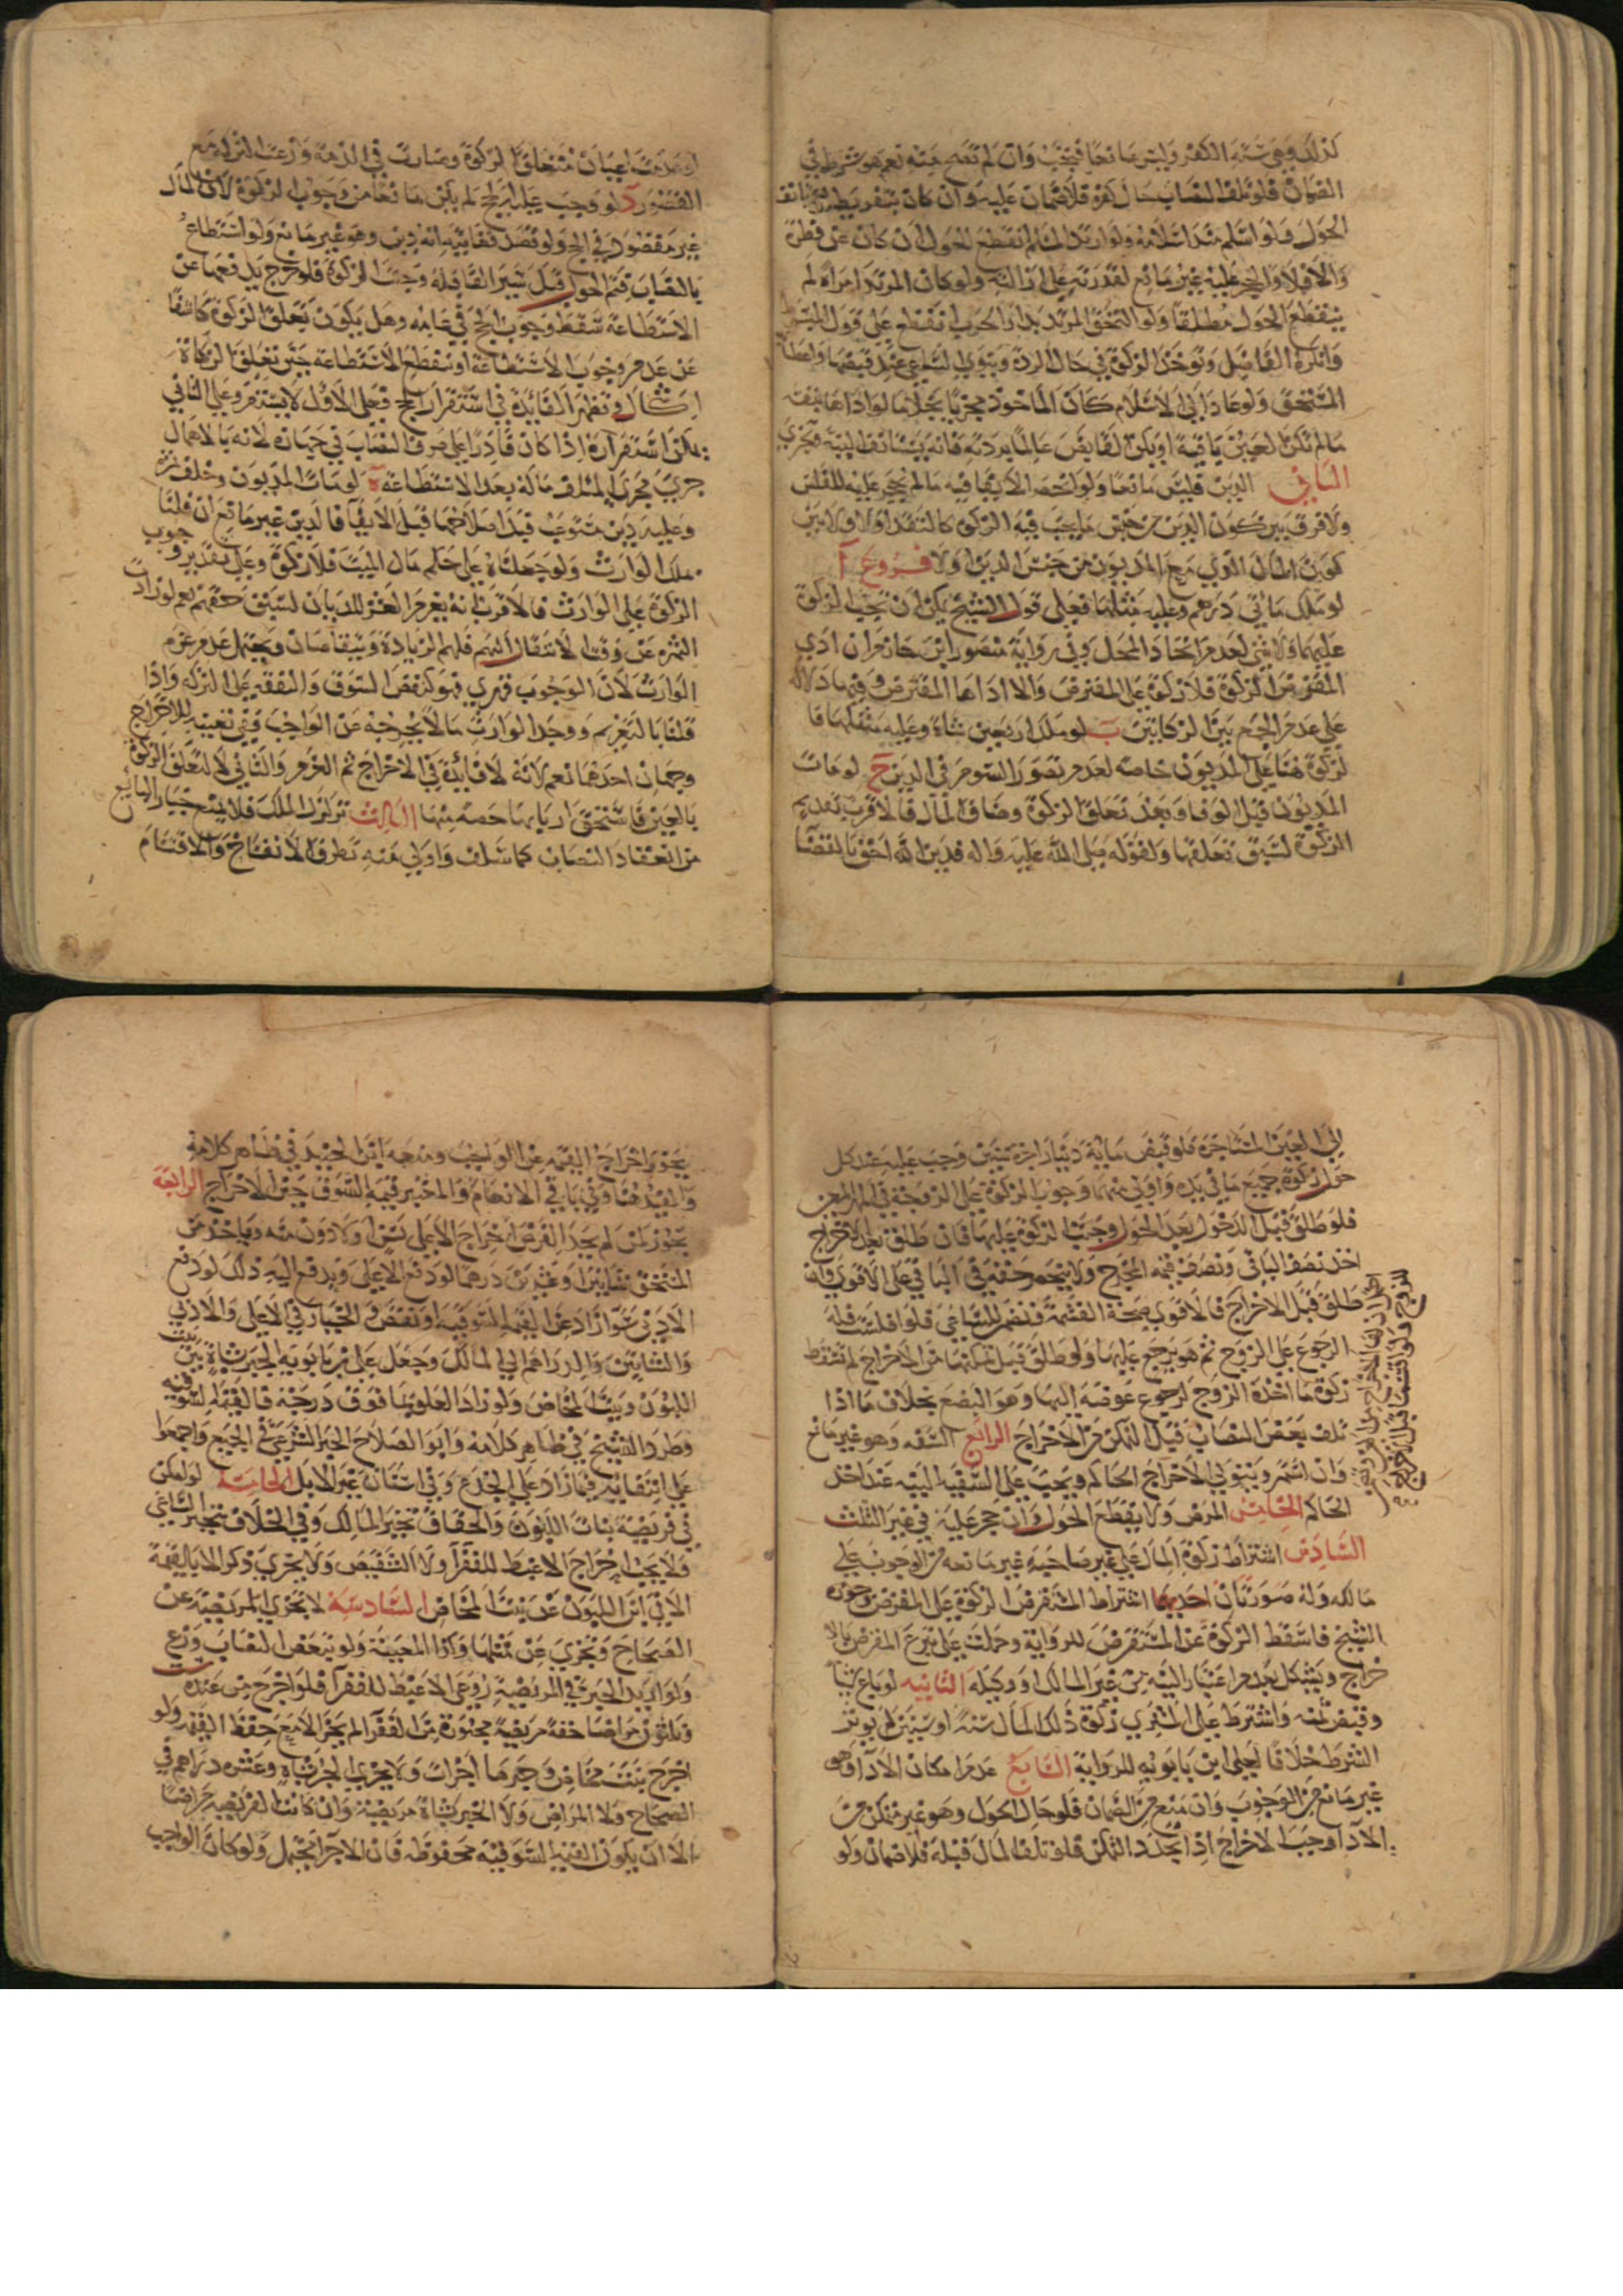 كذلك وهي شبه الكفر وليس مانعا فيجب وان لم تصح منه نعم هو شرط في
الضمان فلو تلف النصاب حال كفره فلا ضمان عليه وان كان بتفريط
الحول ولو اسلم منذ اسلامه ولو ارتد المسلم انقطع الحول ان كان عن فطرة
والا فلا والحجر عليه غير مانع لقدرته على ازالته ولو كان المرتد امراة لم
ينقطع الحول مطلقا ولو التحق المرتد بدار الحرب انقطع على قول الشيخ
وانكره الفاضل وتوخذ الزكوة في حال الردة وينوي الساعي عند قبضها واعطا
المستحق ولو عاد الى الاسلام كان الماخوذ مجزيا بخلاف ما لو اداها بنفسه
ما لم تكن العين باقية او يكن القابض عالما بردته فانه يستانف النية وتجزي
الثاني الدين فليس مانعا ولو انحصر الايفا فيه ما لم يحجر عليه للفلس
ولا فرق بين كون الدين من جنس ما يجب فيه الزكوة كالنقد او لا ولا بين
كون المال الذي مع المديون من جنس الدين او لا فروع آ
لو ملك مائتي درهم وعليه مثلها فعلى قول الشيخ يمكن ان تجب الزكوة
عليهما ولا شي لعدم اتحاد المحل وفي رواية منصور ابن حازم ان ادى
المقترض الزكوة فلا زكوة على المقرض والا اداها المقترض وفيها دلالة
على عدم الجمع بين الزكاتين ب لو ملك اربعين شاة وعليه مثلها فا
لزكوة هنا على المديون خاصة لعدم تصور السوم في الدين ج لو مات
المديون قبل الوفا وبعد تعلق الزكوة وضاق المال فالاقرب تقديم
الزكوة لسبق تعلقها ولقوله صلى الله عليه واله فدين الله احق بالقضا
لو عدمت اعيان متعلق الزكوة وصارت في الذمة وزعت التركة مع
القصور د لو وجب عليه الحج لم يكن مانعا من وجوب الزكوة لان المال
غير مقصود في الحج ولو فقد فغايته انه دين وهو غير مانع ولو استطاع
بالنصاب فتم الحول قبل سير القافلة وجبت الزكوة فلو خرج بدفعها عن
الاستطاعة سقط وجوب الحج في عامه وهل يكون تعلق الزكوة كاشفا
عن عدم وجوب الاستطاعة او تنقطع الاستطاعة حين تعلق الزكاة
اشكال وتظهر الفائدة في استقرار الحج فعلى الاول لا يستقر وعلى الثاني
يمكن استقراره اذا كان قادرا على صرف النصاب في جهازه لانه بالاهمال
جرى مجرى المتلف ماله بعد الاستطاعة ه لو مات المديون وخلف
وعليه دين مستوعب فبدا صلاحها قبل الايفا فالدين غير مانع ان قلنا
بملك الوارث ولو جعلناه على حكم مال الميت فلا زكوة وعلى تقدير وجوب
الزكوة على الوارث فالاقرب انه يغرم العشر للديان لسبق حقهم نعم لو زادت
الثمره عن وقت الانتقال اليهم فلهم الزيادة ويتقاصان ويحتمل عدم غرم
الوارث لان الوجوب قهري فهو كنقص السوق والنفقه على التركه واذا
قلنا بالتغريم ووجد الوارث ما لا يخرجه عن الواجب ففي تعينه للاخراج
وجهان احدهما نعم لانه لا فائدة في الاخراج ثم الغرم والثاني لا لتعلق الزكوة
بالعين فاستحق اربابها حصه منها الثالث تزلزل الملك فلا يمنع خيار البائع
من انعقاد النصاب كما سلف واولى منه تطرق الانفتاح والاقتسام
الى العين المستاجرة فلو قبض مائة دينار اجرة سنين وجب عليه عند كل
حول زكوة جميع ما في يده واولى منهما وجوب الزكوة على الزوجة في المهر المعين
فلو طلق قبل الدخول بعد الحول وجبت الزكوة عليها فان طلق بعد الاخراج
اخذ نصف الباقي ونصف قيمة المخرج ولا ينحصر حقه في الباقي على الاقوى وان
طلق قبل الاخراج فالاقوى صحة القسمة وتضمن للساعي فلو افلست فله
الرجوع على الزوج ثم هو يرجع عليها ولو طلق قبل تمكنها من الاخراج لم تسقط
زكوة ما اخذه الزوج لرجوع عوضه اليها وهو البضع بخلاف ما اذا
تلف بعض النصاب قبل التمكن من الاخراج الرابع السفه وهو غير مانع
وان استمر ويتولى الاخراج الحاكم ويجب على السفيه النيه عند اخذ
الحاكم الخامس المرض ولا يقطع الحول وان حجر عليه في غير الثلث
السادس اشتراط زكوة المال على غير صاحبه غير مانعه من الوجوب على
مالكه وله صورتان احديهما اشتراط المستقرض الزكوة على المقرض وجوزه
الشيخ فاسقط الزكوة عن المستقرض للرواية وحملت على تبرع المقرض بالا
خراج ويشكل بعدم اعتبار النيه من غير المالك او وكيله الثانيه لو باع شيا
وقبض ثمنه واشترط على المشتري زكوة ذلك المال سنة او سنتين لم يوثر
الشرط خلافا لعلي ابن بابويه للرواية السابع عدم امكان الاداء وهو
غير مانع من الوجوب وان منع من الضمان فلو حال الحول وهو غير متمكن من
الادا وجب الاخراج اذا تجدد التمكن فلو تلف المال قبله فلا ضمان ولو
يجوز اخراج القيمة عن الواجب ومنعه ابن الجنيد في ظاهر كلامه
والمفيد هنا وفي باقي الانعام والمخير قيمة السوق حين الاخراج الرابعة
يجوز لمن لم يجد الفرض اخراج الاعلى سنا ولا دون منه وياخذ من
المستحق شاتين او عشرين درهما لو دفع الاعلى ويدفع اليه ذلك لو دفع
الادنى سوا زاد عن القيمة السوقية او نقص والخيار في الاعلى والادنى
والشاتين والدراهم الى المالك وجعل علي بن بابويه الجبر شاة بين بنت
اللبون وبنت المخاض ولو زاد العلو بما فوق درجة فالقيمة السوقيه
وطرد الشيخ في ظاهر كلامه وابو الصلاح الجبر الشرعي في الجميع واجمعوا
على انتفائه فيما زاد على الجذع وفي اسنان غير الابل الخامسة لو امكن
في فريضة بنات اللبون والحقاق تخير المالك وفي الخلاف تخير الساعي
ولا يجب اخراج الاغبط للفقرا ولا الشقيص ولا يجزي ذكر الا بالقيمة
الا في ابن اللبون عن بنت المخاض السادسة لا تجزي المريضة عن
الصحاح وتجزي عن مثلها وكذا المعيبة ولو تبعض النصاب وزع
ولو اريد الخيرة في المريضة روعي الاغبط للفقرا فلو اخرج من عنده
الصحاح ولا المراض ولا الجبر بشاة مريضة وان كانت الفريضة مراضا
الا ان يكون القيمة السوقيه محفوظه فان الاجزا محتمل ولو كان الواجب